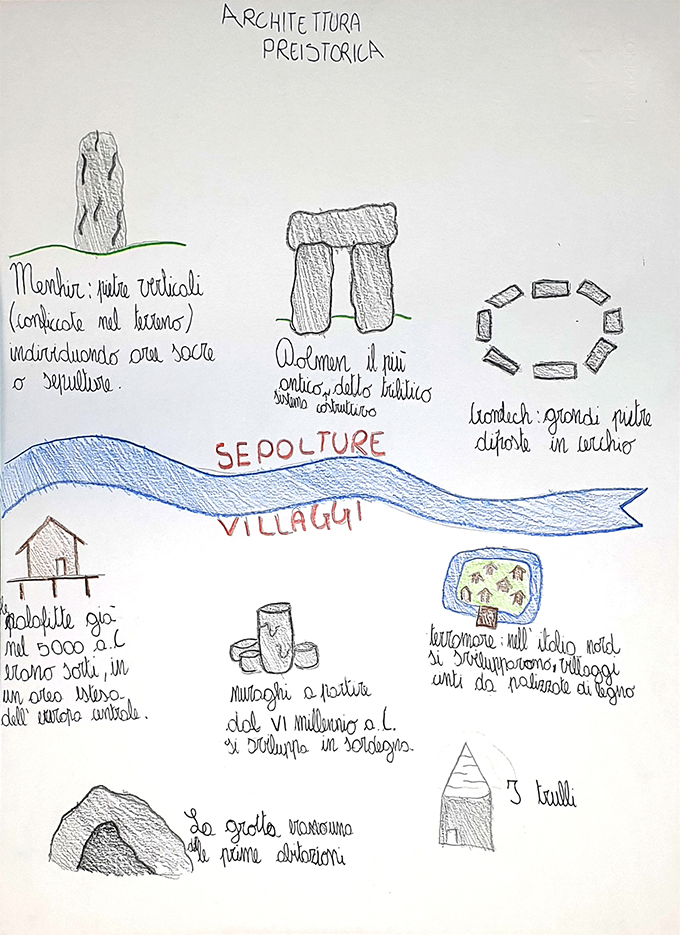 ARCHITETTURA
PREISTORICA
Menhir: pietre verticali
(conficcate nel terreno)
individuando area sacre
o sepulture.
Dolmen il più
antico, detto trilitico
sistema costruttivo
Crondech: grandi pietre
disposte in cerchio
SEPOLTURE
VILLAGGI
le palafitte già
nel 5000 a.C
erano sorti, in
un area istesa
dell'europa centrale.
nuraghi a partire
dal VI millennio a.C.
si sviluppa in sardegna.
terramare: nell'italia nord
si svilupparono, villaggi
cinti da palizzate di legno
La grotta erano una
delle prime abitazioni
I trulli